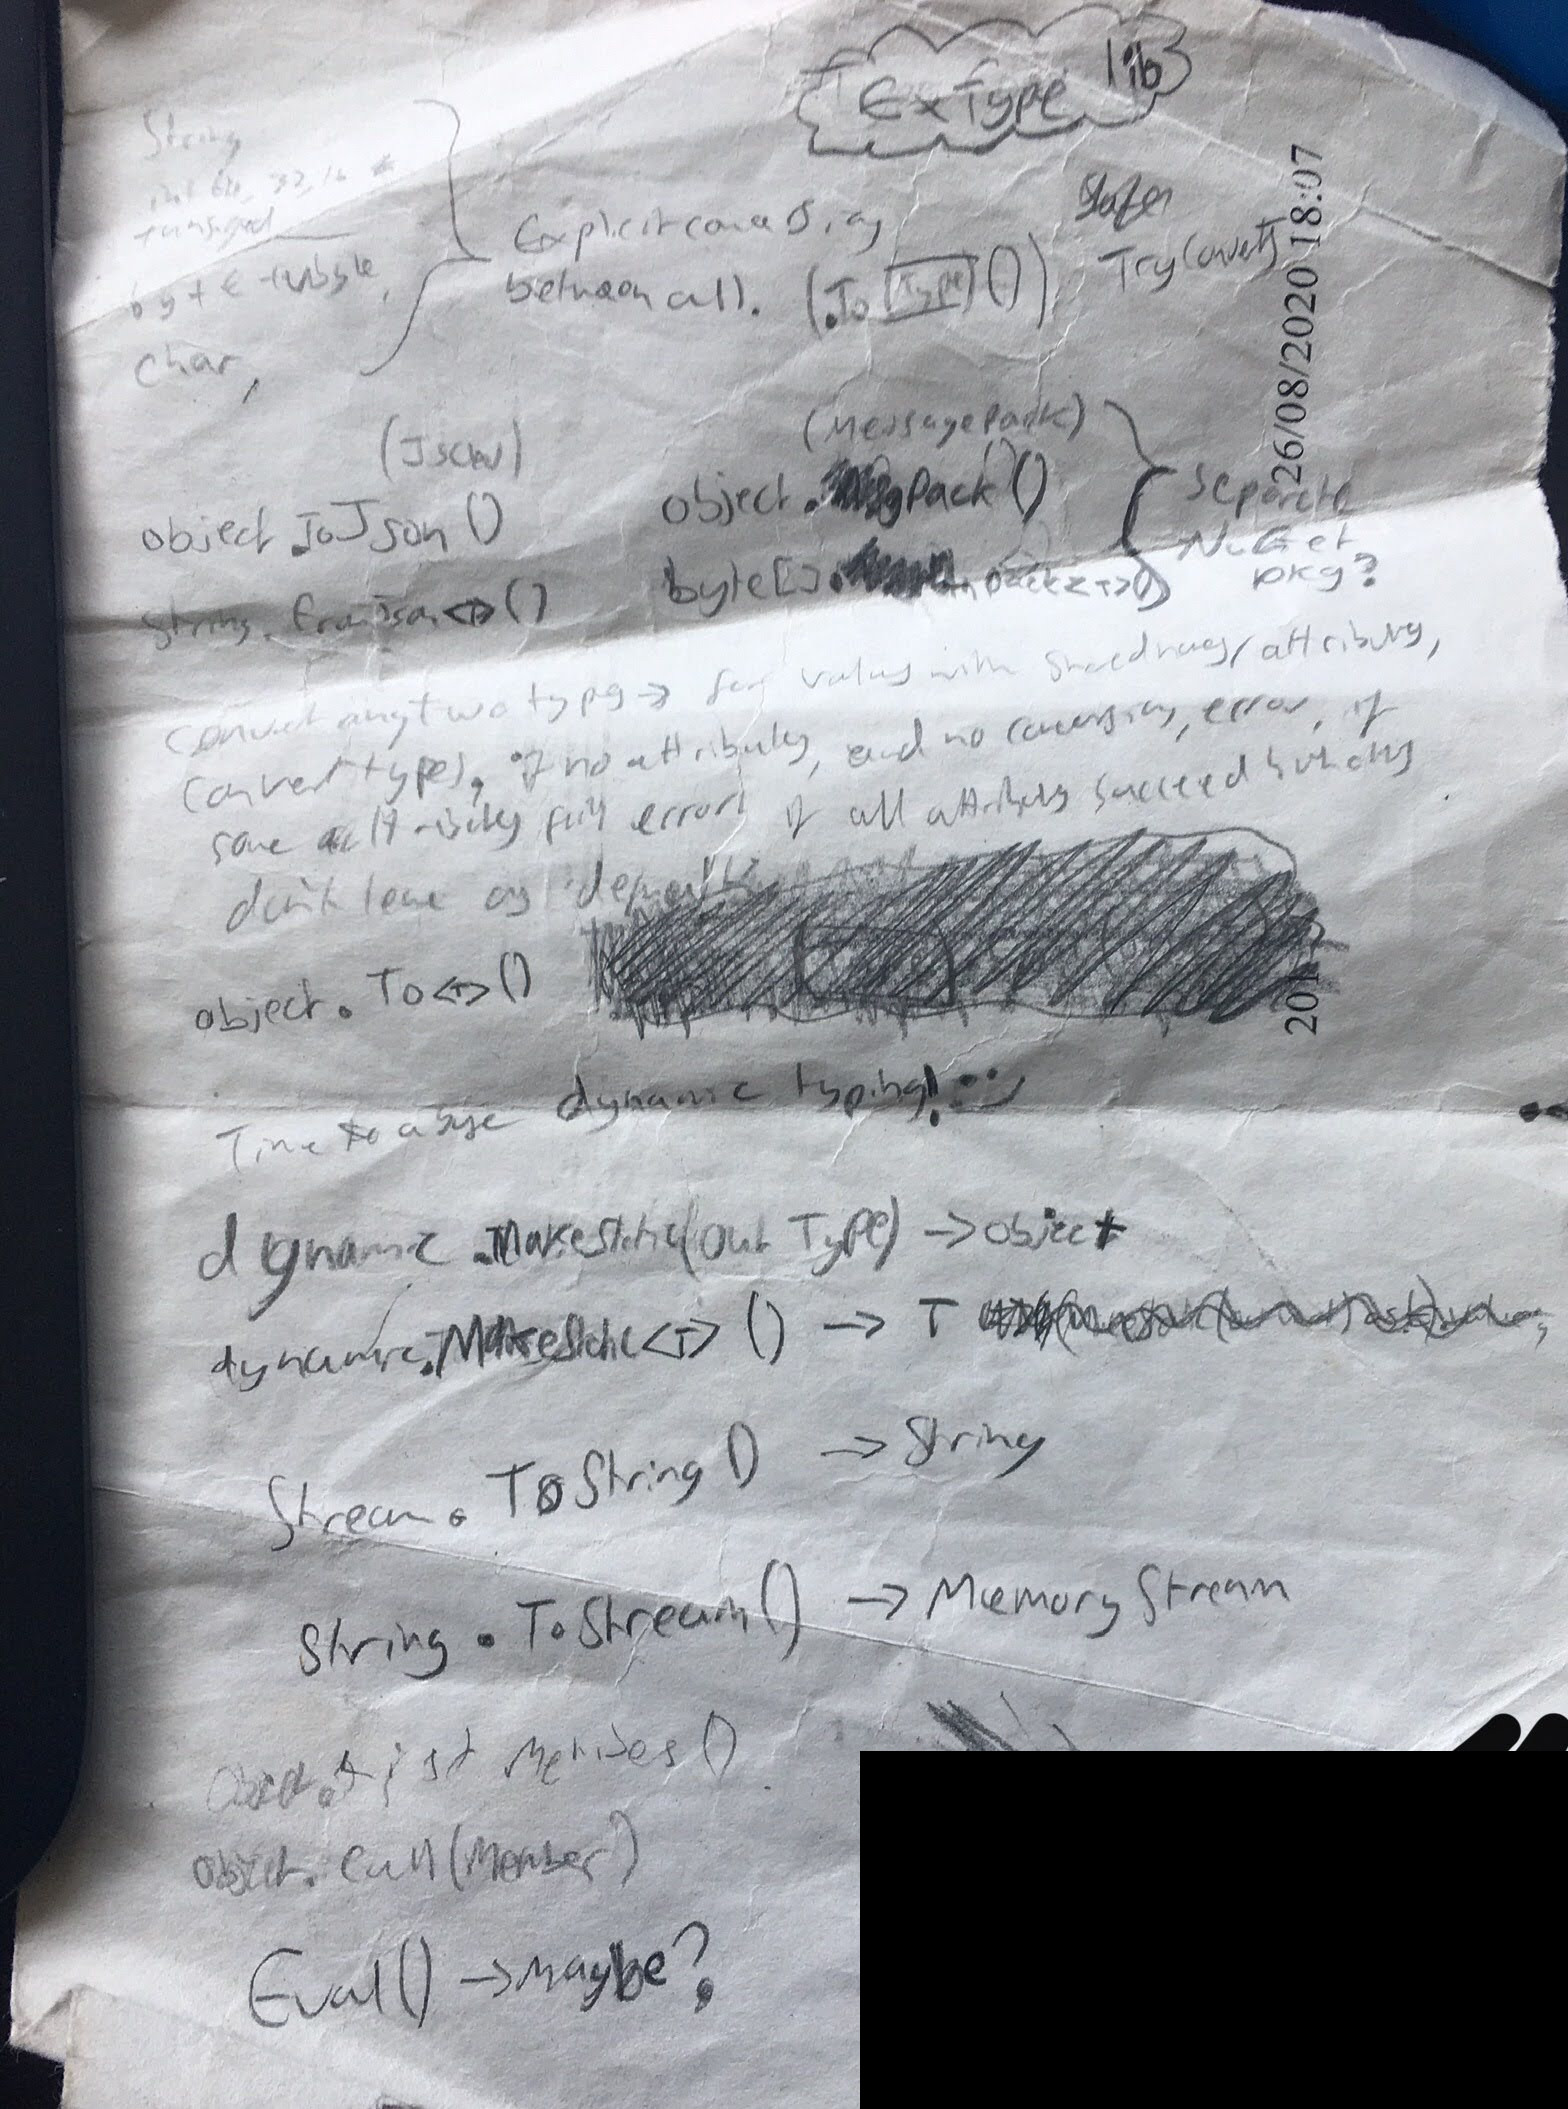 ExType lib
String
int 64, 32, 16 *
+ unsigned
byte + ubyte,
char,
Explicit conversions
between all. (.To[Type]())
Safer
TryConvert
26/08/2020 18:07
(JSON)
object.ToJson()
String.FromJson<T>()
(MessagePack)
object. MsgPack()
byte[]. npack<T>()
Separate
NuGet
pkg?
Convert any two types → for values with shared names/attributes,
convert types, if no attributes, and no conversions, error, if
some attributes fail error if all attributes succeed but others
don't leave as default
object.To<T>()
201
Time to abuse dynamic typing! :)
dynamic.MakeStatic(out Type) → object
dynamic.MakeStatic<T>() → T
Stream.ToString() → String
String.ToStream() → MemoryStream
object.List Members()
object.Call(Member)
Eval() → Maybe?